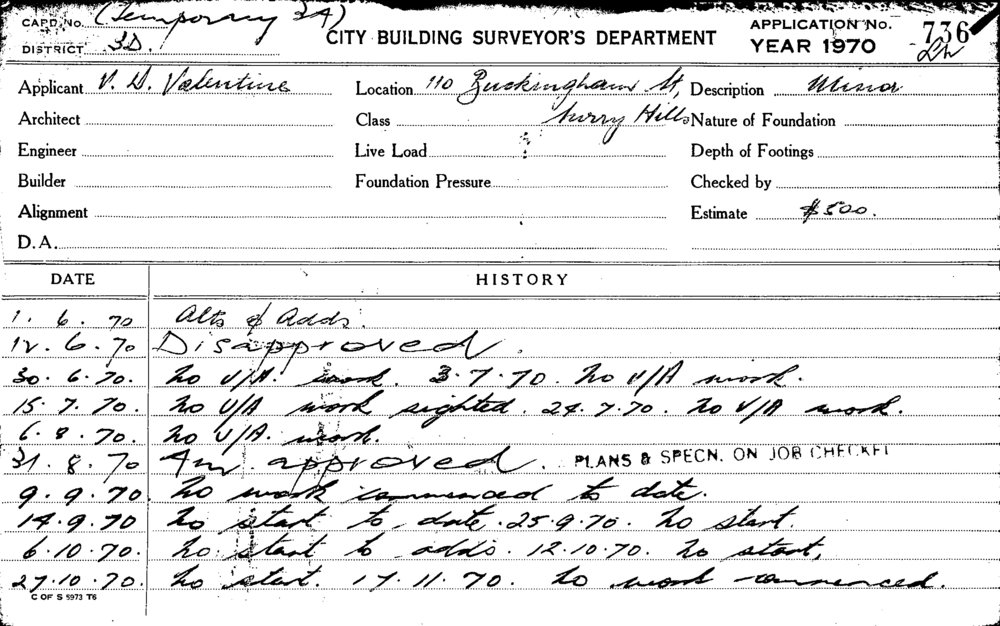 CARD No. (Temporary 3A)
DISTRICT 3D.
CITY BUILDING SURVEYOR'S DEPARTMENT
APPLICATION No. 736
YEAR 1970
Applicant V. D. Valentine Location 110 Buckingham St, Description Minor
Architect Class Surry Hills Nature of Foundation
Engineer Live Load Depth of Footings
Builder Foundation Pressure Checked by
Alignment Estimate $500.
D.A.
DATE HISTORY
1. 6. 70 Alts & Adds.
12. 6. 70 Disapproved.
30. 6. 70. No U/A. work. 3.7.70. No U/A work.
15. 7. 70. No U/A work sighted. 24.7.70. No U/A work.
6. 8. 70. No U/A. work.
31. 8. 70 Am. approved. PLANS & SPECN. ON JOB CHECKED
9. 9. 70. No work commenced to date.
14. 9. 70 No start to date. 25.9.70. No start.
6. 10. 70. No start to adds. 12.10.70. No start.
27. 10. 70. No start. 17. 11. 70. No work commenced.
C OF S 5973 T6